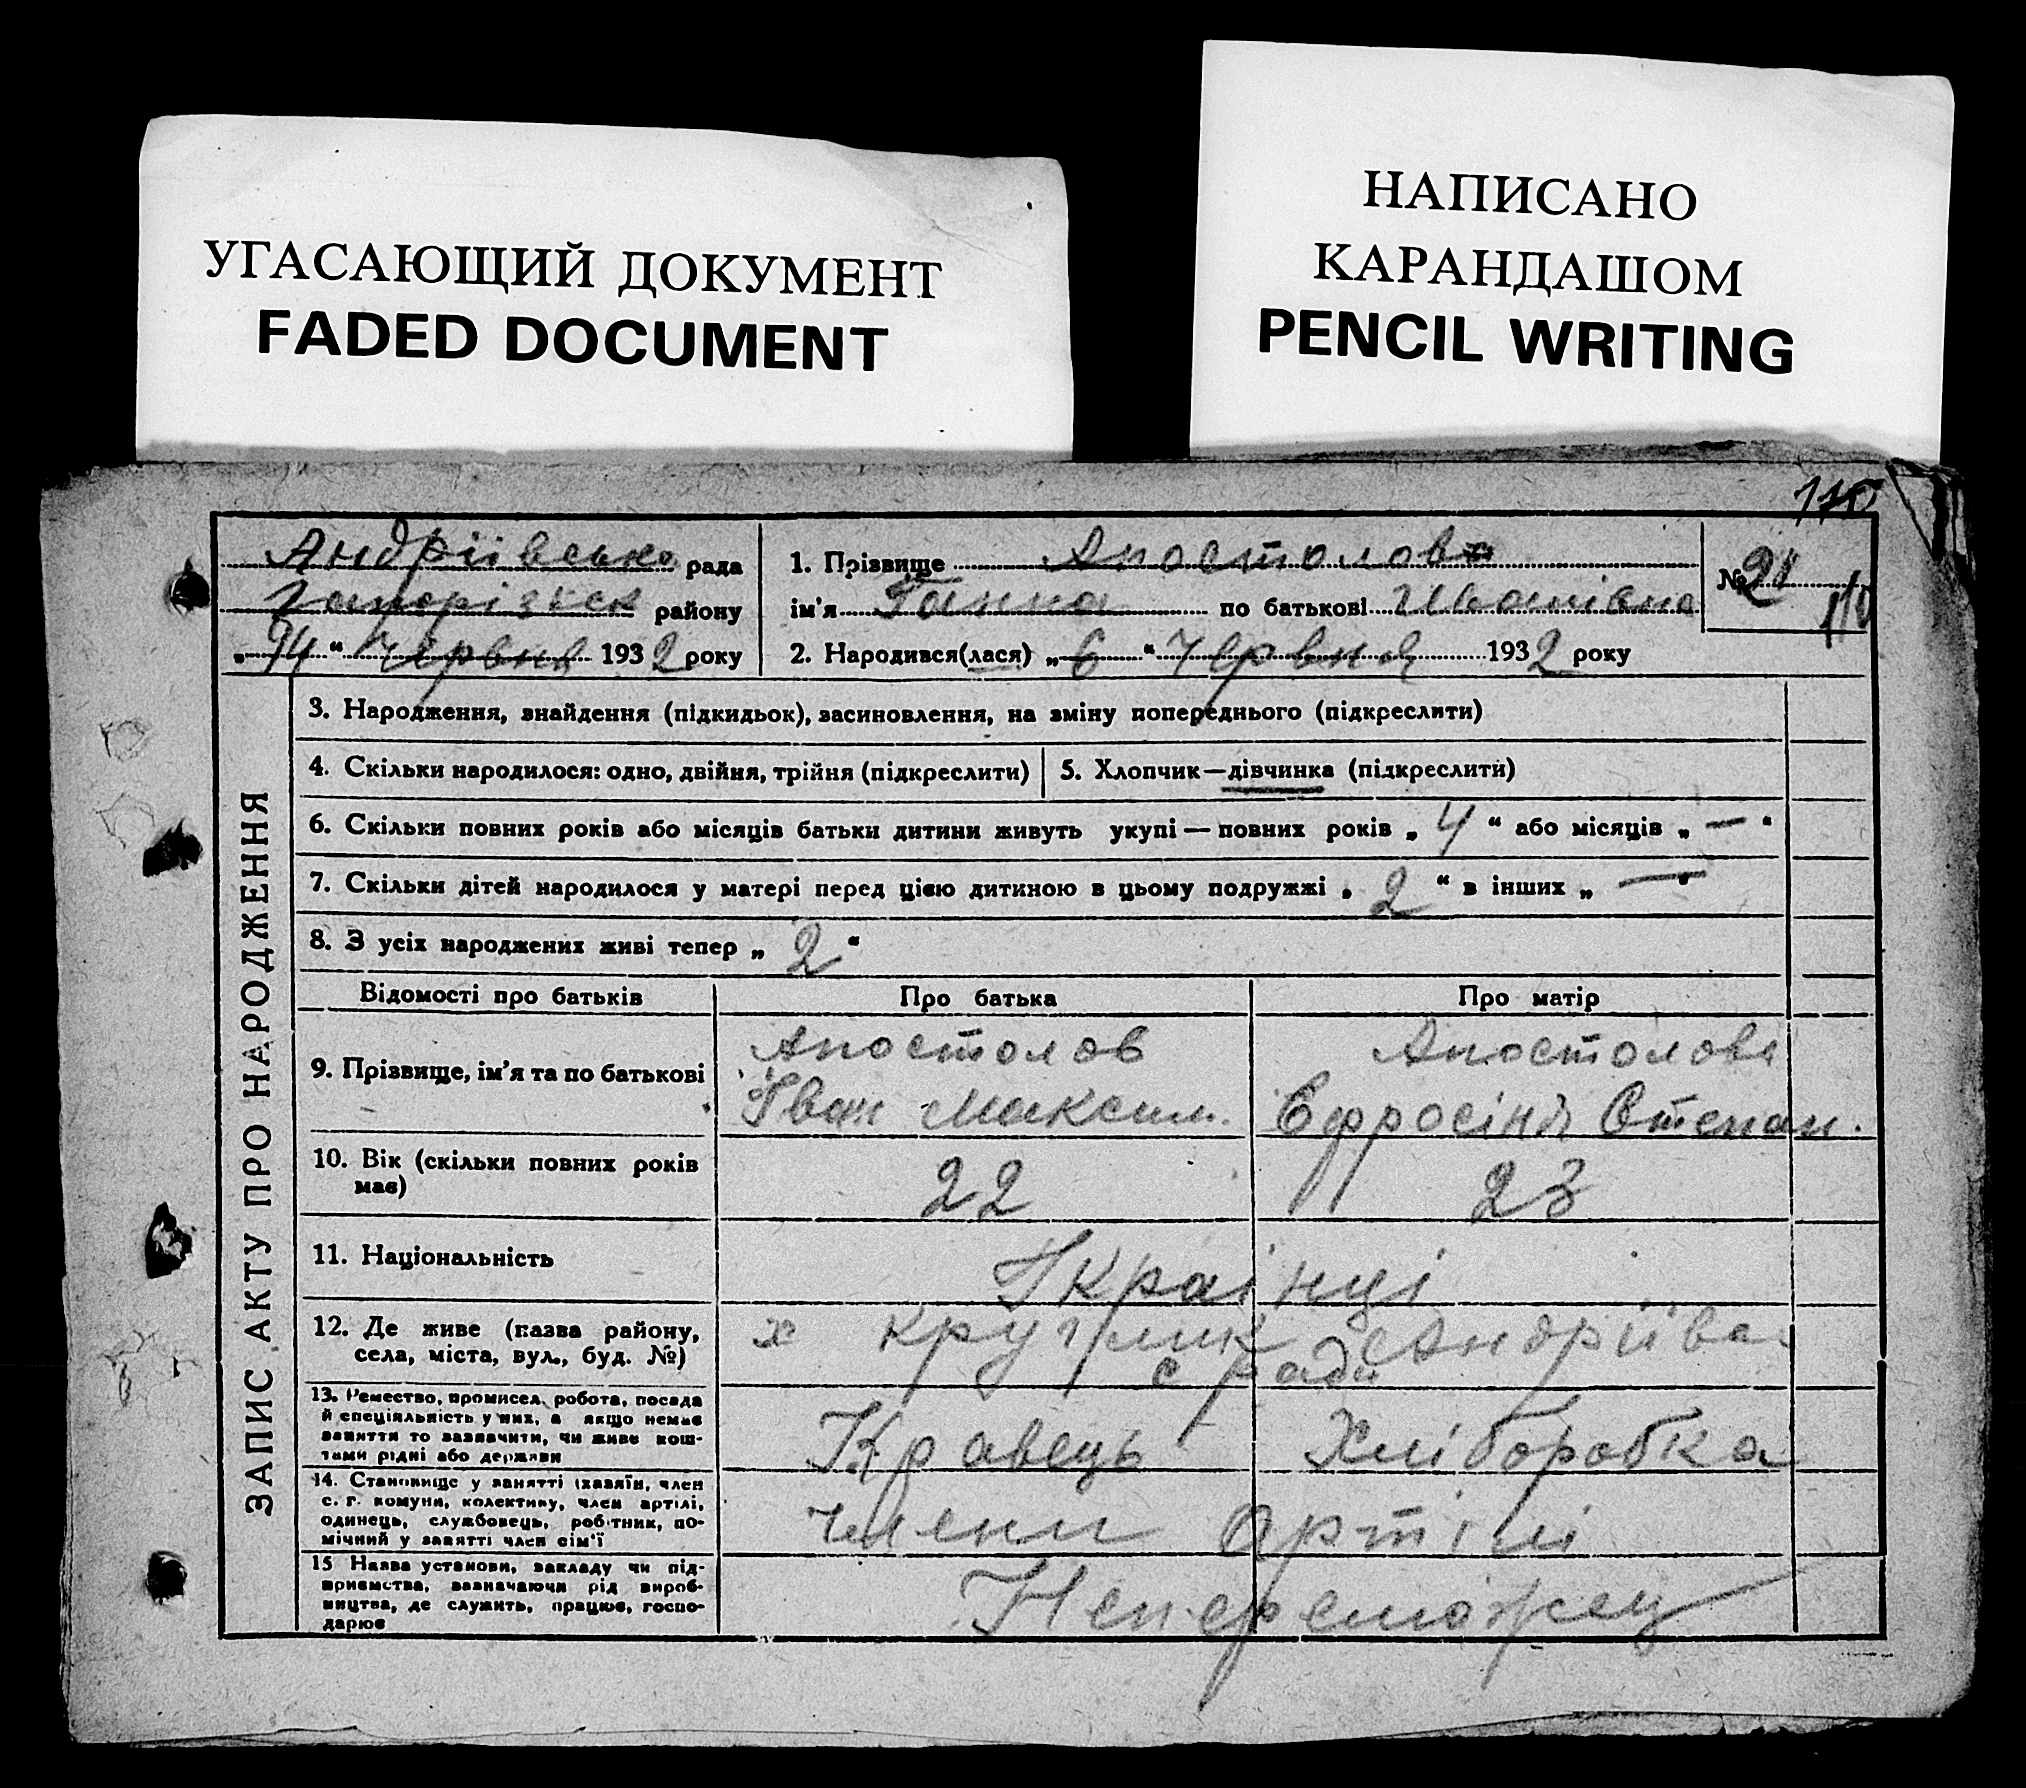 УГАСАЮЩИЙ ДОКУМЕНТ
FADED DOCUMENT
НАПИСАНО
КАРАНДАШОМ
PENCIL WRITING
Андріівська рада
Запорізьк району
„14“ Червня 1932 року
1. Прізвище Апостолова
ім'я Ганна по батькові Іванівна
2. Народився(лася) „6“ Червня 1932 року
№ 21
110
ЗАПИС АКТУ ПРО НАРОДЖЕННЯ
3. Народження, знайдення (підкидьок), засиновлення, на зміну попереднього (підкреслити)
4. Скільки народилося: одно, двійня, трійня (підкреслити)
5. Хлопчик—дівчинка (підкреслити)
6. Скільки повних років або місяців батьки дитини живуть укупі — повних років „4“ або місяців „—“
7. Скільки дітей народилося у матері перед цією дитиною в цьому подружжі „2“ в інших „—“
8. З усіх народжених живі тепер „2“
Відомості про батьків
Про батька
Про матір
9. Прізвище, ім'я та по батькові
Апостолов
Іван Максим.
Апостолова
Єфросіня Степан.
10. Вік (скільки повних років
має)
22
23
11. Національність
Українці
12. Де живе (назва району,
села, міста, вул., буд. №)
х Круглик Андріївс.
с ради
13. Ремество, промисел, робота, посада
й спеціяльність у них, а якщо немає
заняття то зазначити, чи живе кош-
тами рідні або держави
Кравець
Хліборобка
14. Становище у занятті (хазяїн, член
с. г. комуни, колективу, член артілі,
одинець, службовець, робітник, по-
мічний у занятті член сім'ї
члени Артілі
15 Назва установи, закладу чи під-
приємства, зазначаючи рід вироб-
ництва, де служить, працює, госпо-
дарює
Непереможец